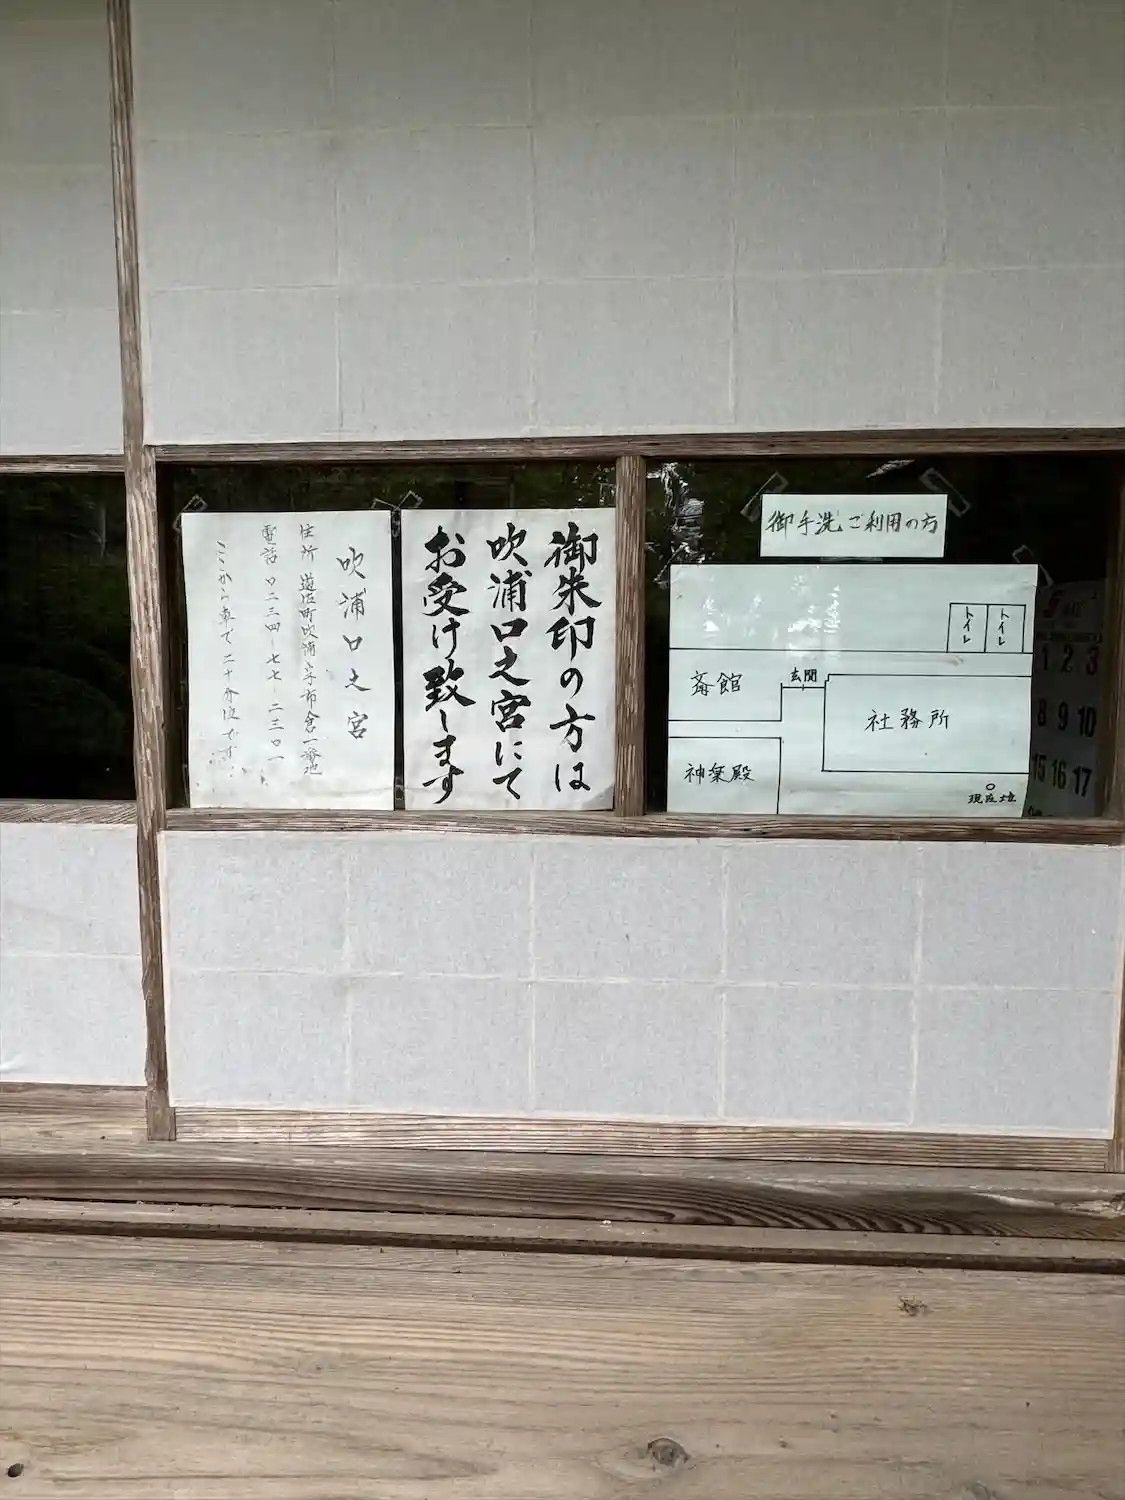 御手洗ご利用の方
トイレ
トイレ
斎館
玄関
社務所
神楽殿
現在地
御朱印の方は
吹浦口之宮にて
お受け致します
吹浦口之宮
住所 遊佐町吹浦字布倉一番地
電話 〇二三四-七七-二三〇一
ここから車で二十分位です。
1 2 3
8 9 10
15 16 17